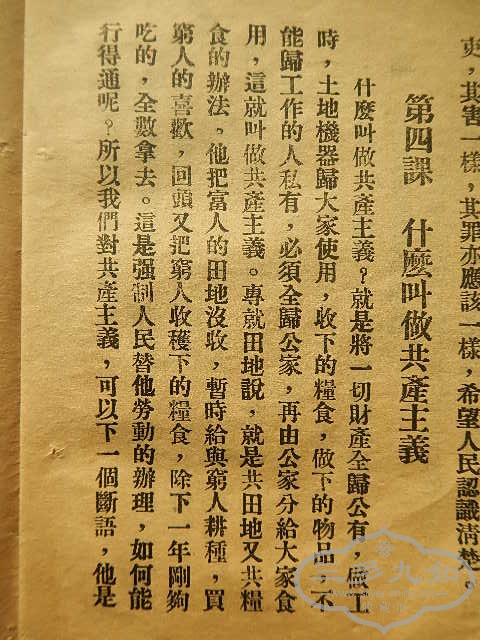 吏，其害一樣，其罪亦應該一樣，希望人民認識清楚。
第四課　什麼叫做共產主義
什麼叫做共產主義？就是將一切財產全歸公有，做工
時，土地機器歸大家使用，收下的糧食，做下的物品，不
能歸工作的人私有，必須全歸公家，再由公家分給大家食
用，這就叫做共產主義。專就田地說，就是共田地又共糧
食的辦法。他把富人的田地沒收，暫時給與窮人耕種，買
窮人的喜歡，回頭又把窮人收穫下的糧食，除下一年剛夠
吃的，全數拿去。這是强制人民替他勞動的辦理，如何能
行得通呢？所以我們對共產主義，可以下一個斷語，他是